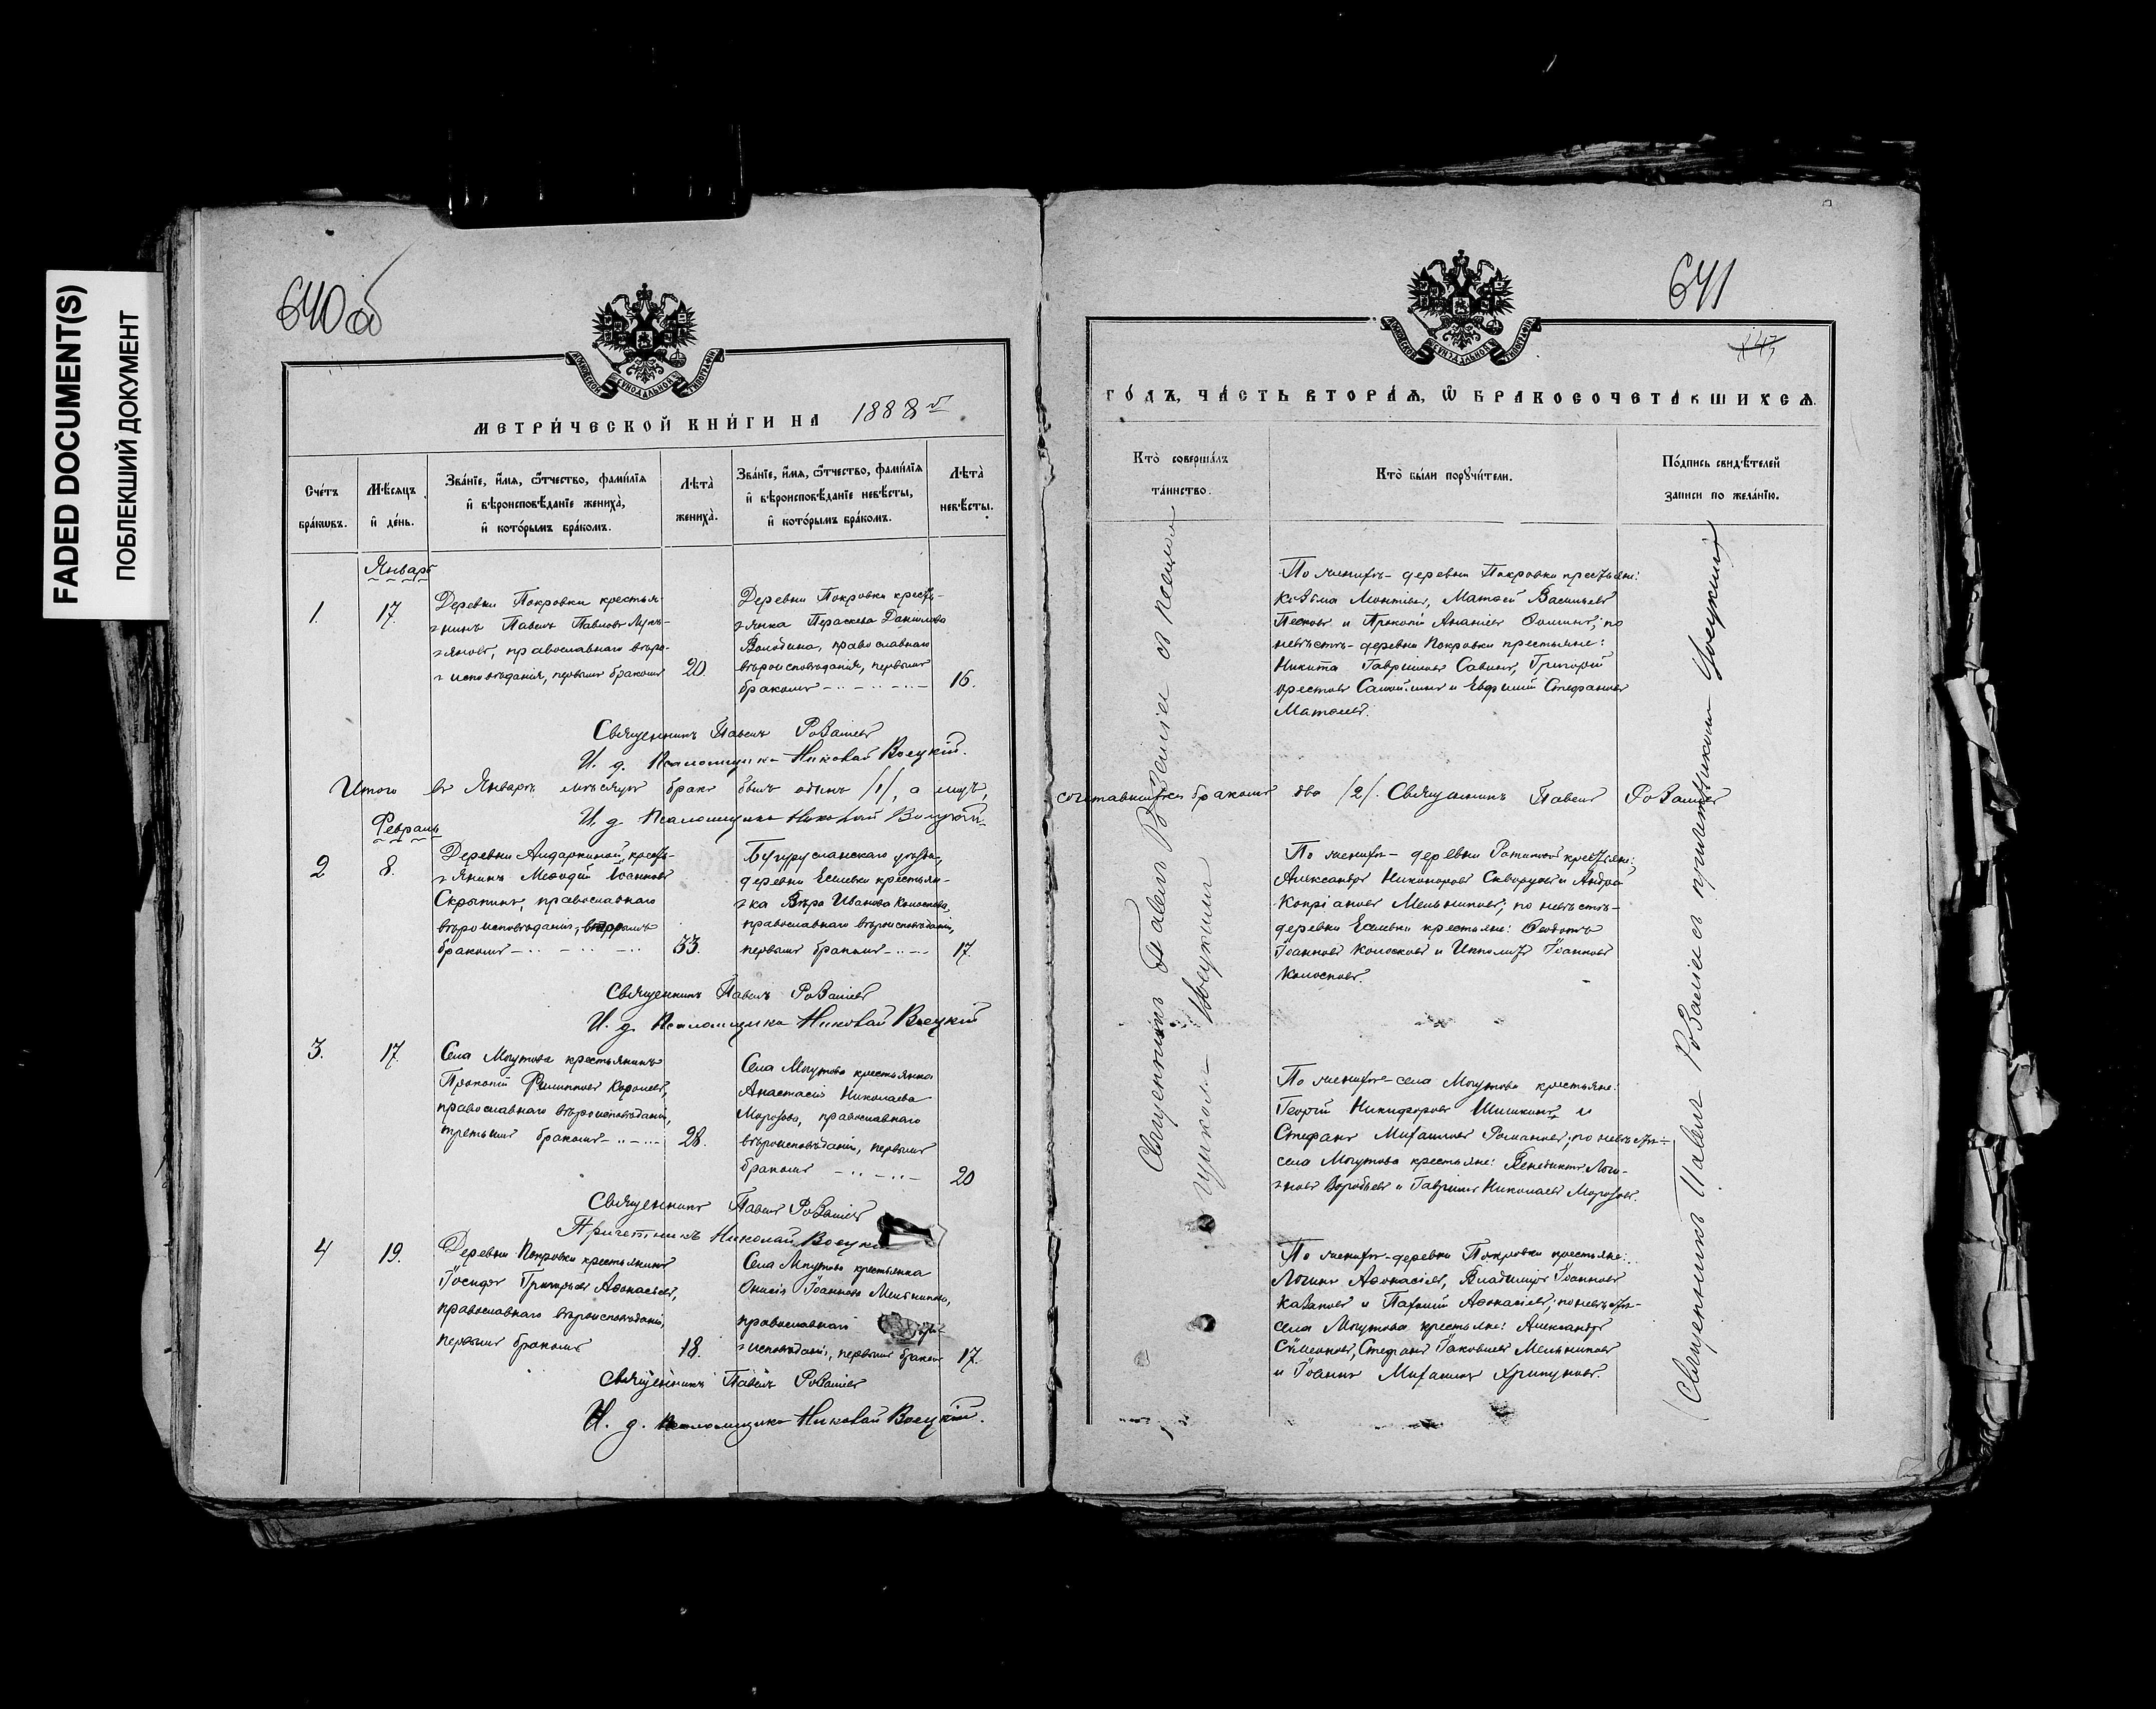 FADED DOCUMENT(S)
ПОБЛЕКШИЙ ДОКУМЕНТ
640об
МОСКОВСКОЙ СѴНОДАЛЬНОЙ ТИПОГРАФІИ
МЕТРИ́ЧЕСКОЙ КНИ́ГИ НА 1888 й
Сче́тъ
бра́кѡвъ.
Мѣ́сяцъ
и҆ де́нь.
Зва́нїе, и҆́мя, ѿтчество, фами́лїя
и҆ вѣроисповѣ́данїе жениха̀,
и҆ кото́рымъ бра́комъ.
Лѣта̀
жениха̀.
Зва́нїе, и҆́мя, ѿтчество, фами́лїя
и҆ вѣроисповѣ́данїе невѣ́сты,
и҆ кото́рымъ бра́комъ.
Лѣта̀
невѣ́сты.
Январь
1.
17.
Деревни Покровки крестья-
нинъ Павелъ Павловъ Лукь-
яновъ, православнаго вѣро-
исповѣданія, первымъ бракомъ
20.
Деревни Покровки кресть-
янка Параскева Данилова
Володина, православнаго
вѣроисповѣданія, первымъ
бракомъ
16.
Священникъ Павелъ Розаліевъ
И. д. Псаломщика Николай Воецкій.
Итого въ Январѣ мѣсяцѣ бракъ былъ одинъ /1/, а лицъ,
И. д. Псаломщика Николай Воецкій
Февраль
2
8.
Деревни Андаркиной кресть-
янинъ Меѳодій Іоанновъ
Скрыпинъ, православнаго
вѣроисповѣданія, вторымъ
бракомъ
33.
Бугурусланскаго уѣзда,
деревни Есиевки крестьян-
ка Вѣра Иванова Колоскова,
православнаго вѣроисповѣданія,
первымъ бракомъ
17.
Священникъ Павелъ Розаліевъ
И. д. Псаломщика Николай Воецкій
3.
17.
Села Могутова крестьянинъ
Прокопій Филипповъ Королевъ,
православнаго вѣроисповѣданія,
третьимъ бракомъ
28.
Села Могутова крестьянка
Анастасія Николаева
Морозова, православнаго
вѣроисповѣданія, первымъ
бракомъ
20
Священникъ Павелъ Розаліевъ
Причетникъ Николай Воецкій
4
19.
Деревни Покровки крестьянинъ
Іосифъ Григорьевъ Аѳонасьевъ,
православнаго вѣроисповѣданія,
первымъ бракомъ
18.
Села Могутова крестьянка
Онисія Іоаннова Мельникова,
православнаго вѣро-
исповѣданія, первымъ бракомъ
17.
Священникъ Павелъ Розаліевъ
И. д. Псаломщика Николай Воецкій.
641
МОСКОВСКОЙ СѴНОДАЛЬНОЙ ТИПОГРАФІИ
ГО́ДЪ, ЧА́СТЬ ВТОРА́Я, Ѽ БРАКОСОЧЕТА́ВШИХСЯ.
Кто̀ соверша́лъ
та́инство.
Кто̀ бы́ли порꙋчи́тели.
По́дпись свидѣ́телей
записи по жела́нїю.
Священникъ Павелъ Розаліевъ съ псалом-
щикомъ Воецкимъ
По женихѣ - деревни Покровки крестьяне:
Козьма Матѳей Васильевъ
Песковъ и Прокопій Ананіевъ Ѳоминъ; по
невѣстѣ - деревни Покровки крестьяне:
Никита Гавриловъ Савинъ, Григорій
и Евфимій Стефановъ
сочетавшихся бракомъ два /2/. Священникъ Павелъ Розаліевъ
По женихѣ - деревни крестьяне:
Александръ Никоноровъ Скворцовъ и Андрей
Кипріановъ Мельниковъ; по невѣстѣ -
деревни Есиевки крестьяне: Ѳеодотъ
Іоанновъ Колосковъ и Ипполитъ Іоанновъ
Колосковъ.
По женихѣ - села Могутова крестьяне:
Георгій Никифоровъ Шишкинъ и
Стефанъ Михаиловъ Романовъ; по невѣстѣ -
села Могутова крестьяне: Венедиктъ Логи-
новъ Воробьевъ и Гавріилъ Николаевъ Морозовъ.
По женихѣ - деревни Покровки крестьяне:
Логинъ Аѳонасіевъ, Владиміръ Іоанновъ
Казаковъ и Пахомій Аѳонасіевъ, по невѣстѣ -
села Могутова крестьяне: Александръ
Сѵмеоновъ, Стефанъ Іаковлевъ Мельниковъ
и Іоаннъ Михаиловъ Хрипуновъ.
Священникъ Павелъ Розаліевъ съ причетникомъ Воецкимъ